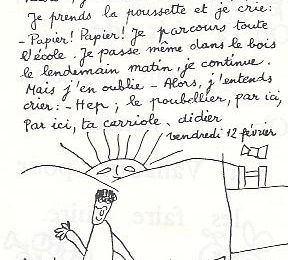 Je prends la poussette et je crie:
- Papier! Papier! Je parcours toute
l'école. Je passe même dans le bois
le lendemain matin, je continue.
Mais j'en oublie - Alors, j'entends
crier: - Hep; le poubellier, par ici,
Par ici, ta carriole. didier
vendredi 12 février